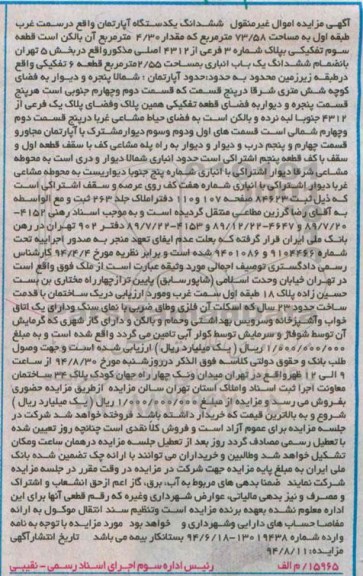 آگهی مزایده اموال غیرمنقول ششدانگ یکدستگاه آپارتمان واقع درسمت غرب
طبقه اول به مساحت ۷۳/۵۸ مترمربع که مقدار ۴/۳۰ مترمربع آن بالکن است قطعه
سوم تفکیکی بپلاک شماره ۳ فرعی از ۴۳۱۲ اصلی مذکورواقع دربخش ۵ تهران
بانضمام ششدانگ یک باب انباری بمساحت ۲/۵۵مترمربع قطعه ۶ تفکیکی واقع
درطبقه زیرزمین محدود به حدود:حدود آپارتمان : شمالا پنجره و دیوار به فضای
کوچه شش متری شرقا درپنج قسمت که قسمت دوم وچهارم جنوبی است هرپنج
قسمت پنجره و دیواربه فضای قطعه تفکیکی همین پلاک وفضای پلاک یک فرعی از
۴۳۱۲ جنوبا لبه نرده و بالکن است به فضای حیاط مشاعی غربا درپنج قسمت دوم
وچهارم شمالی است قسمت های اول ودوم وسوم دیوارمشترک با آپارتمان مجاورو
قسمت چهارم و پنجم درب و دیوار و دیوار به راه پله مشاعی کف با سقف قطعه اول و
سقف با کف قطعه پنجم اشتراکی است حدود انباری شمالا دیوار و دری است به محوطه
مشاعی شرقا دیوار اشتراکی با انباری شماره پنج جنوبا دیواریست به محوطه مشاعی
غربا دیوار اشتراکی با انباری شماره هفت کف روی عرصه و سقف اشتراکی است
که ذیل ثبت ۸۴۶۲۳ صفحه ۱۰۷ و۱۱۰ دفتر املاک جلد ۲۶۳ ثبت و مع الواسطه
به آقای رضا گرزین مطاعی منتقل گردیده است و به موجب اسناد رهنی ۴۱۵۲-
۸۹/۷/۲۰ و ۴۶۴۷-۸۹/۱۲/۲۲ و ۴۱۵۳-۸۹/۷/۲۲ دفتر ۹۰۲ تهران در رهن
بانک ملی ایران قرار گرفته که بعلت عدم ایفای تعهد منجر به صدور اجراییه تحت
شماره ۹۱۰۴۴۶۶ و ۹۴۰۱۰۸۶ شده است و برابر نظریه مورخ ۹۴/۴/۴ کارشناس
رسمی دادگستری توصیف اجمالی مورد وثیقه عبارت است از ملک فوق واقع است
در تهران خیابان وحدت اسلامی (شاپورسابق) پایین ترازچهارراه مختاری بن بست
حسین زاده پلاک ۱۸ طبقه اول سمت غرب ومورد ارزیابی دریک ساختمان با قدمت
ساخت حدود ۲۳ سال که اسکلت آن فلزی وطاق ضربی با نمای سنگ ودارای یک اتاق
خواب وآشپزخانه وسرویس بهداشتی وحمام و بالکن و دارای گاز شهری که گرمایش
آن توسط شوفاژ و سرمایش توسط کولر آبی تامین می گردد واقع شده است و به مبلغ
۱/۶۰۰/۰۰۰/۰۰۰ ریال ( یک میلیارد ریال ) ارزیابی شده است و جهت وصول
طلب بانک و حقوق دولتی کلاسه فوق الذکر درروزشنبه مورخ ۹۴/۸/۳۰ از ساعت
۹ الی ۱۲ ظهرواقع در تهران میدان ونک چهار راه جهان کودک پلاک ۳۴ ساختمان
معاونت اجرا ثبت اسناد واملاک استان تهران سالن مزایده ازطریق مزایده حضوری
بفروش می رسد و مزایده از مبلغ ۱/۶۰۰/۰۰۰/۰۰۰ ریال ( یک میلیارد ریال )
شروع و به بالاترین قیمت که خریدار داشته باشد فروخته خواهد شد شرکت در
جلسه مزایده برای عموم آزاد است و فروش کلا نقدی است چنانچه روز تعیین شده
با تعطیل رسمی مصادف گردد روز بعد از تعطیل جلسه مزایده درهمان ساعت ومکان
تشکیل خواهد شد وطالبین و خریداران می توانند با ارائه چک تضمین شده بانک
ملی ایران به مبلغ پایه مزایده جهت شرکت در مزایده در وقت مقرر در جلسه مزایده
شرکت نمایند ضمنا بدهی های مربوط به آب، برق، گاز اعم ازحق انشعاب و اشتراک
و مصرف و نیز بدهی مالیاتی، عوارض شهرداری وغیره که رقم قطعی آنها برای این
اداره معلوم نشده بعهده برنده مزایده است وتنظیم سند انتقال موکول به ارائه
مفاصا حساب های دارایی وشهرداری و خواهد بود مورد مزایده با توجه به نامه
وارده شماره ۱۹۴۳۸ - ۱۳۰-۹۴/۶/۱۸ بستانکار بیمه می باشد تاریخ انتشارآگهی
مزایده:۹۴/۸/۱۱
۱۵۹۶۵/ م الف رئیس اداره سوم اجرای اسناد رسمی - نقیبی